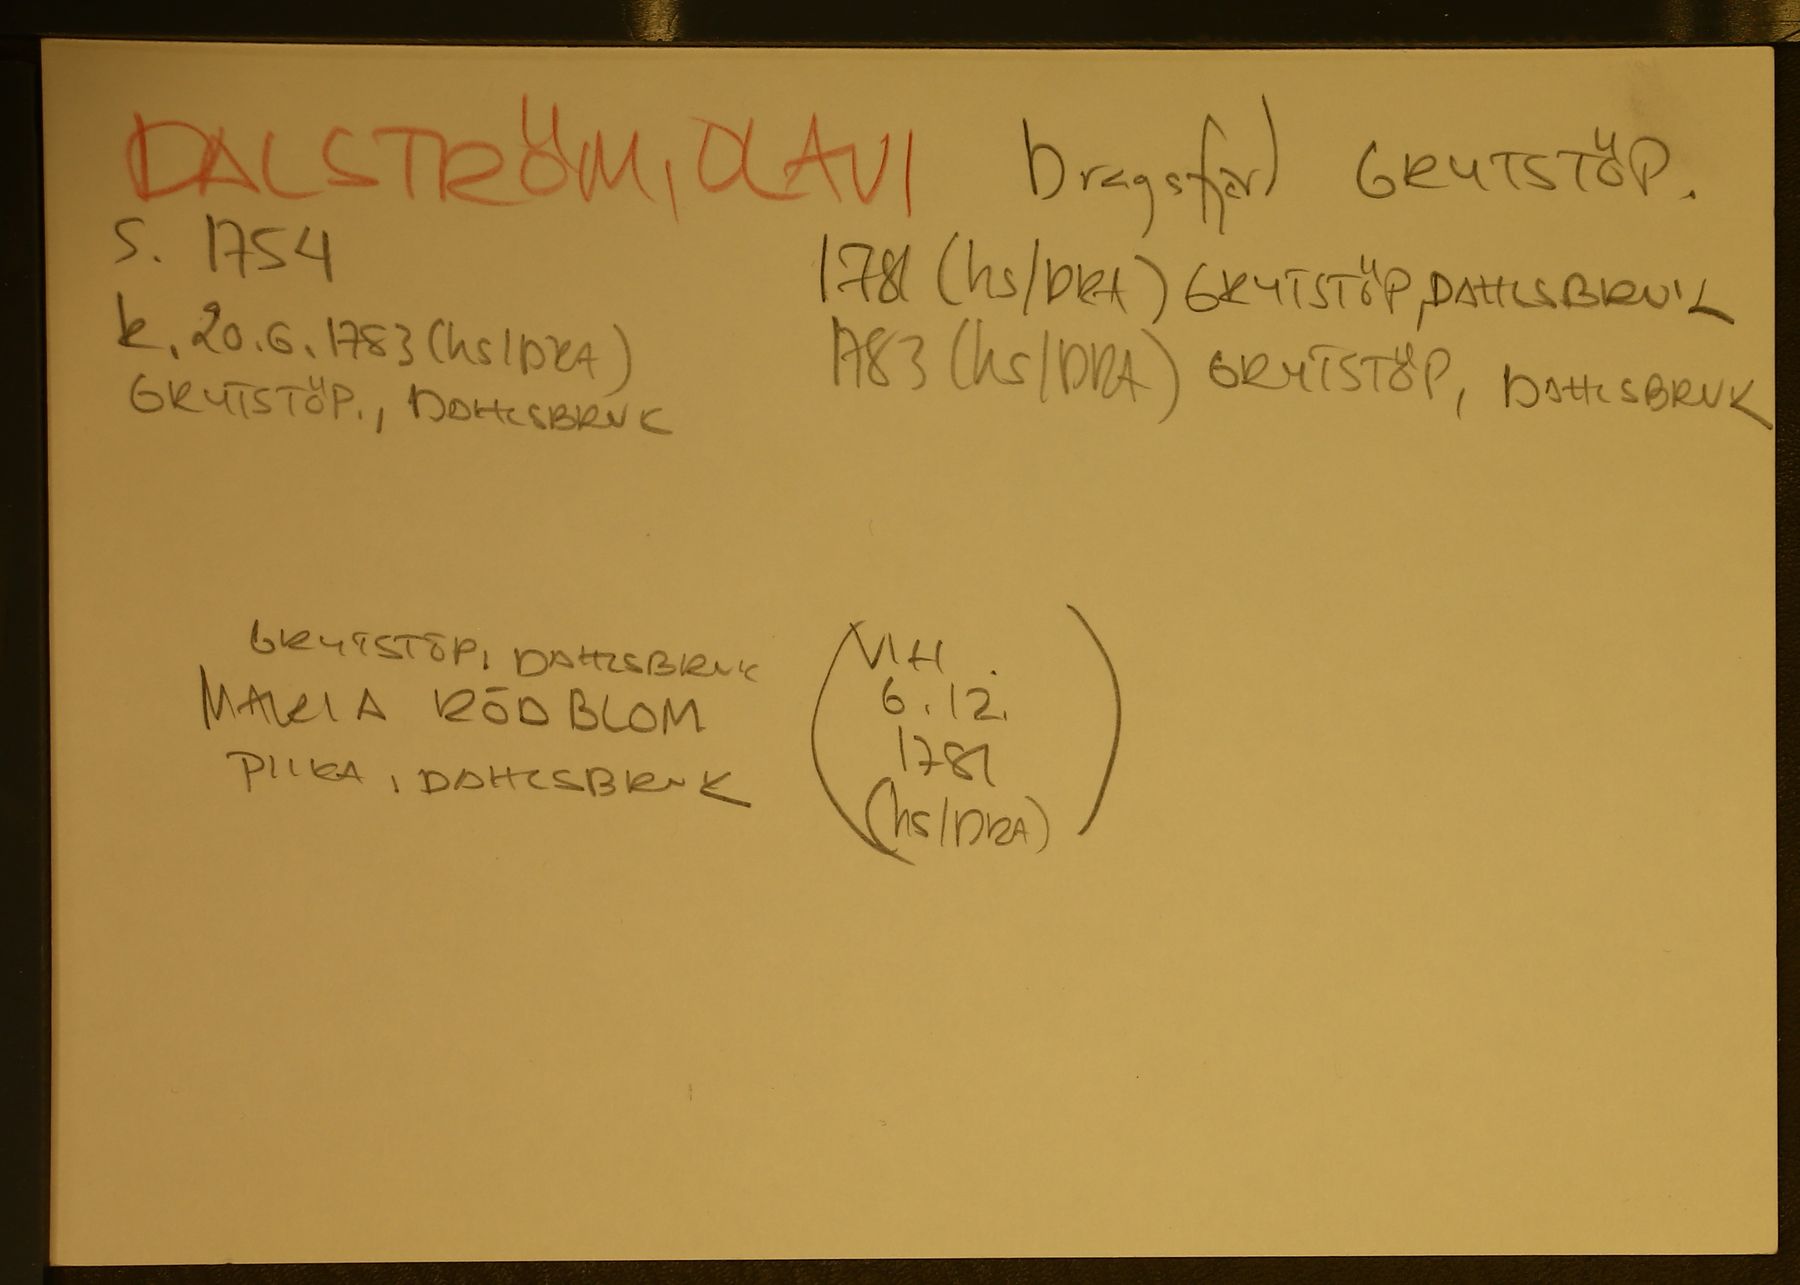 DALSTRÖM, OLAVI Dragsfjärd GRYTSTÖP.
s. 1754
1781 (hs/DRA) GRYTSTÖP, DAHLSBRUK
k. 20.6.1783 (hs/DRA)
1783 (hs/DRA) GRYTSTÖP, DAHLSBRUK
GRYTSTÖP., DAHLSBRUK
GRYTSTÖP, DAHLSBRUK
MARIA RÖDBLOM
PIIKA, DAHLSBRUK
(VIH.
6.12.
1781
(hs/DRA))